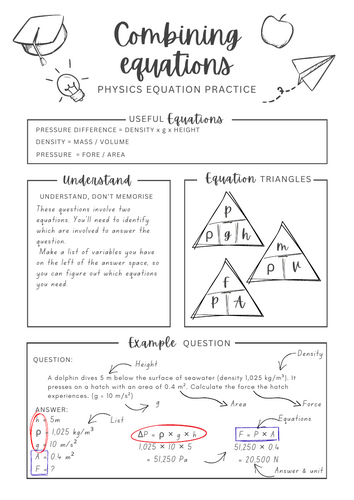 Combining
equations
PHYSICS EQUATION PRACTICE
USEFUL Equations
PRESSURE DIFFERENCE = DENSITY x g x HEIGHT
DENSITY = MASS / VOLUME
PRESSURE = FORE / AREA
Understand
UNDERSTAND, DON'T MEMORISE
These questions involve two
equations. You'll need to identify
which are involved to answer the
question.
Make a list of variables you have
on the left of the answer space, so
you can figure out which equations
you need.
Equation TRIANGLES
p
ρ g h
m
ρ v
f
P A
Example QUESTION
QUESTION:
Height
Density
A dolphin dives 5 m below the surface of seawater (density 1,025 kg/m³). It
presses on a hatch with an area of 0.4 m². Calculate the force the hatch
experiences. (g = 10 m/s²)
g
Area
Force
ANSWER:
List
Equations
h = 5m
ρ = 1,025 kg/m³
g = 10 m/s²
A = 0.4 m²
F = ?
ΔP = ρ × g × h
1,025 × 10 × 5
= 51,250 Pa
F = P × A
51,250 × 0.4
= 20,500 N
Answer & unit